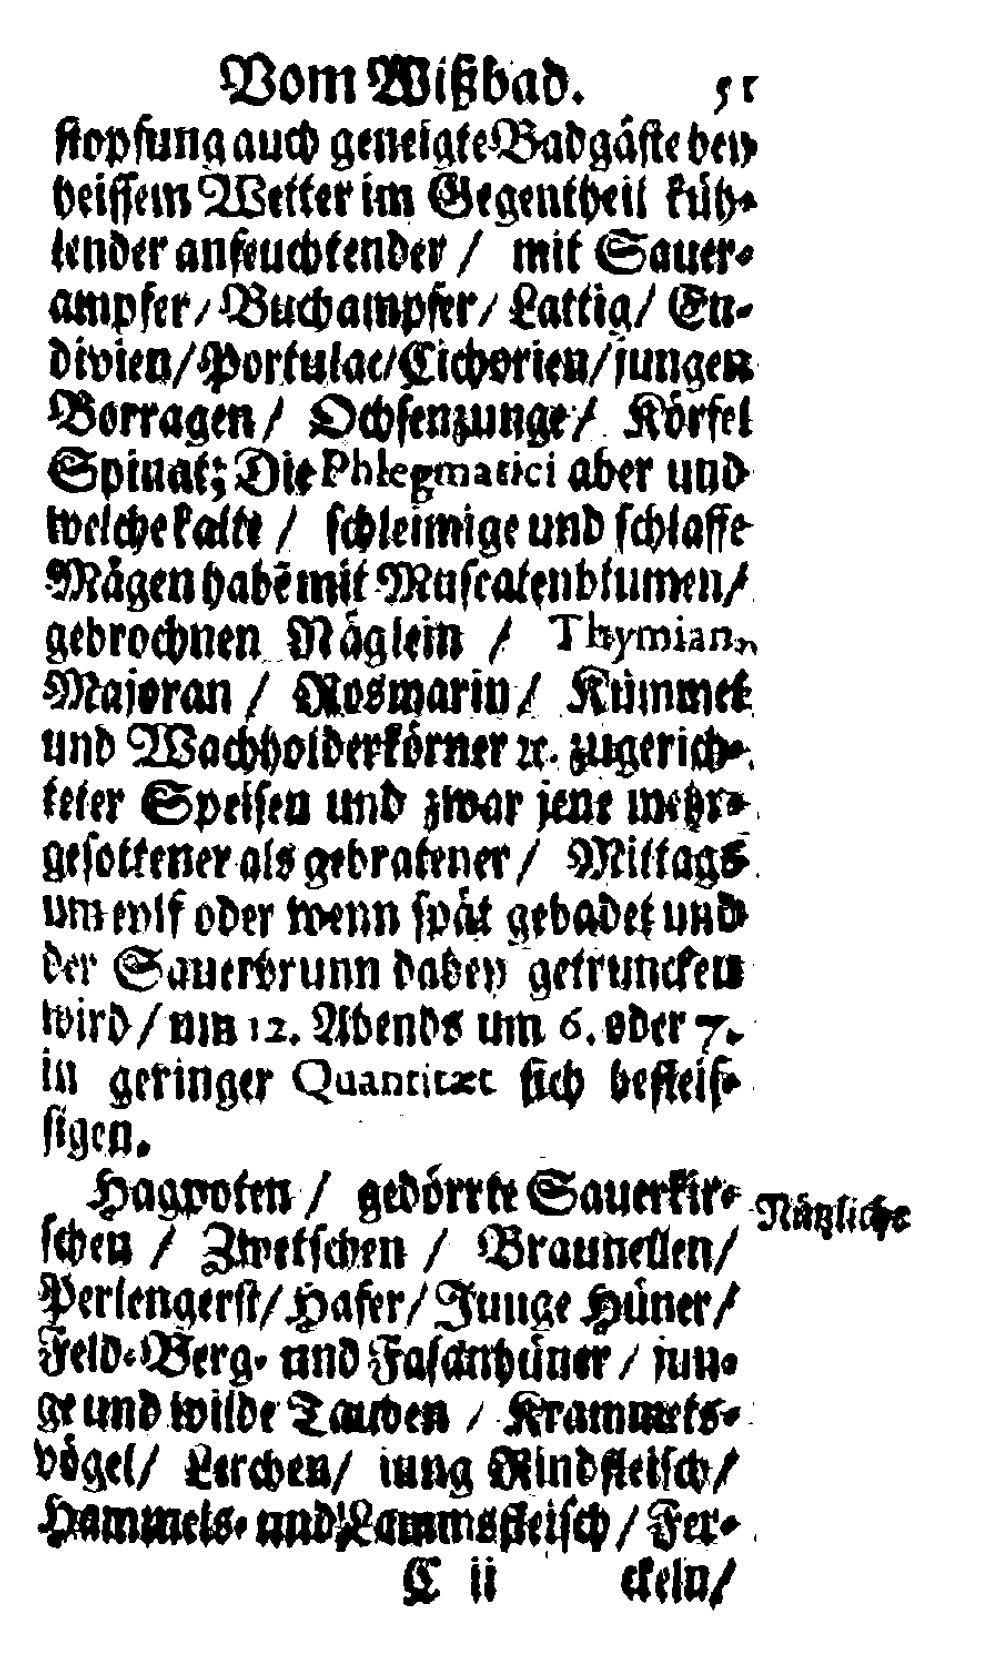 Vom Wißbad. 51
stopfung auch geneigte Badgäste bey
heissem Wetter im Gegentheil küh-
lender anfeuchtender / mit Sauer-
ampfer / Buchampfer / Lattig / En-
divien / Portulac / Cichorien / jungen
Borragen / Ochsenzunge / Körfel
Spinat; Die Phlegmatici aber und
welche kalte / schleimige und schlaffe
Mägen habẽ mit Muscatenblumen /
gebrochnen Näglein / Thymian,
Majoran / Rosmarin / Kümmel
und Wachholderkörner ꝛc. zugerich-
teter Speisen und zwar jene mehr-
gesottener als gebratener / Mittags
um eylf oder wenn spät gebadet und
der Sauerbrunn dabey getruncken
wird / um 12. Abends um 6. oder 7.
in geringer Quantitæt sich befleis-
sigen.
Hagpoten / gedörrte Sauerkir-
schen / Zwetschen / Braunellen /
Perlengerst / Hafer / Junge Hüner /
Feld- Berg- und Fasanhüner / jun-
ge und wilde Tauben / Krammets-
vögel / Lerchen / jung Rindfleisch /
Hammels- und Lammsfleisch / Fer-
C ii ckeln /
Nützliche